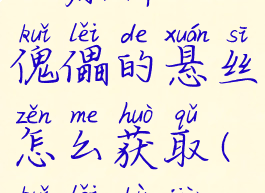 kuǐ lěi de xuán sī
傀儡的悬丝
zěn me huò qǔ
怎么获取(